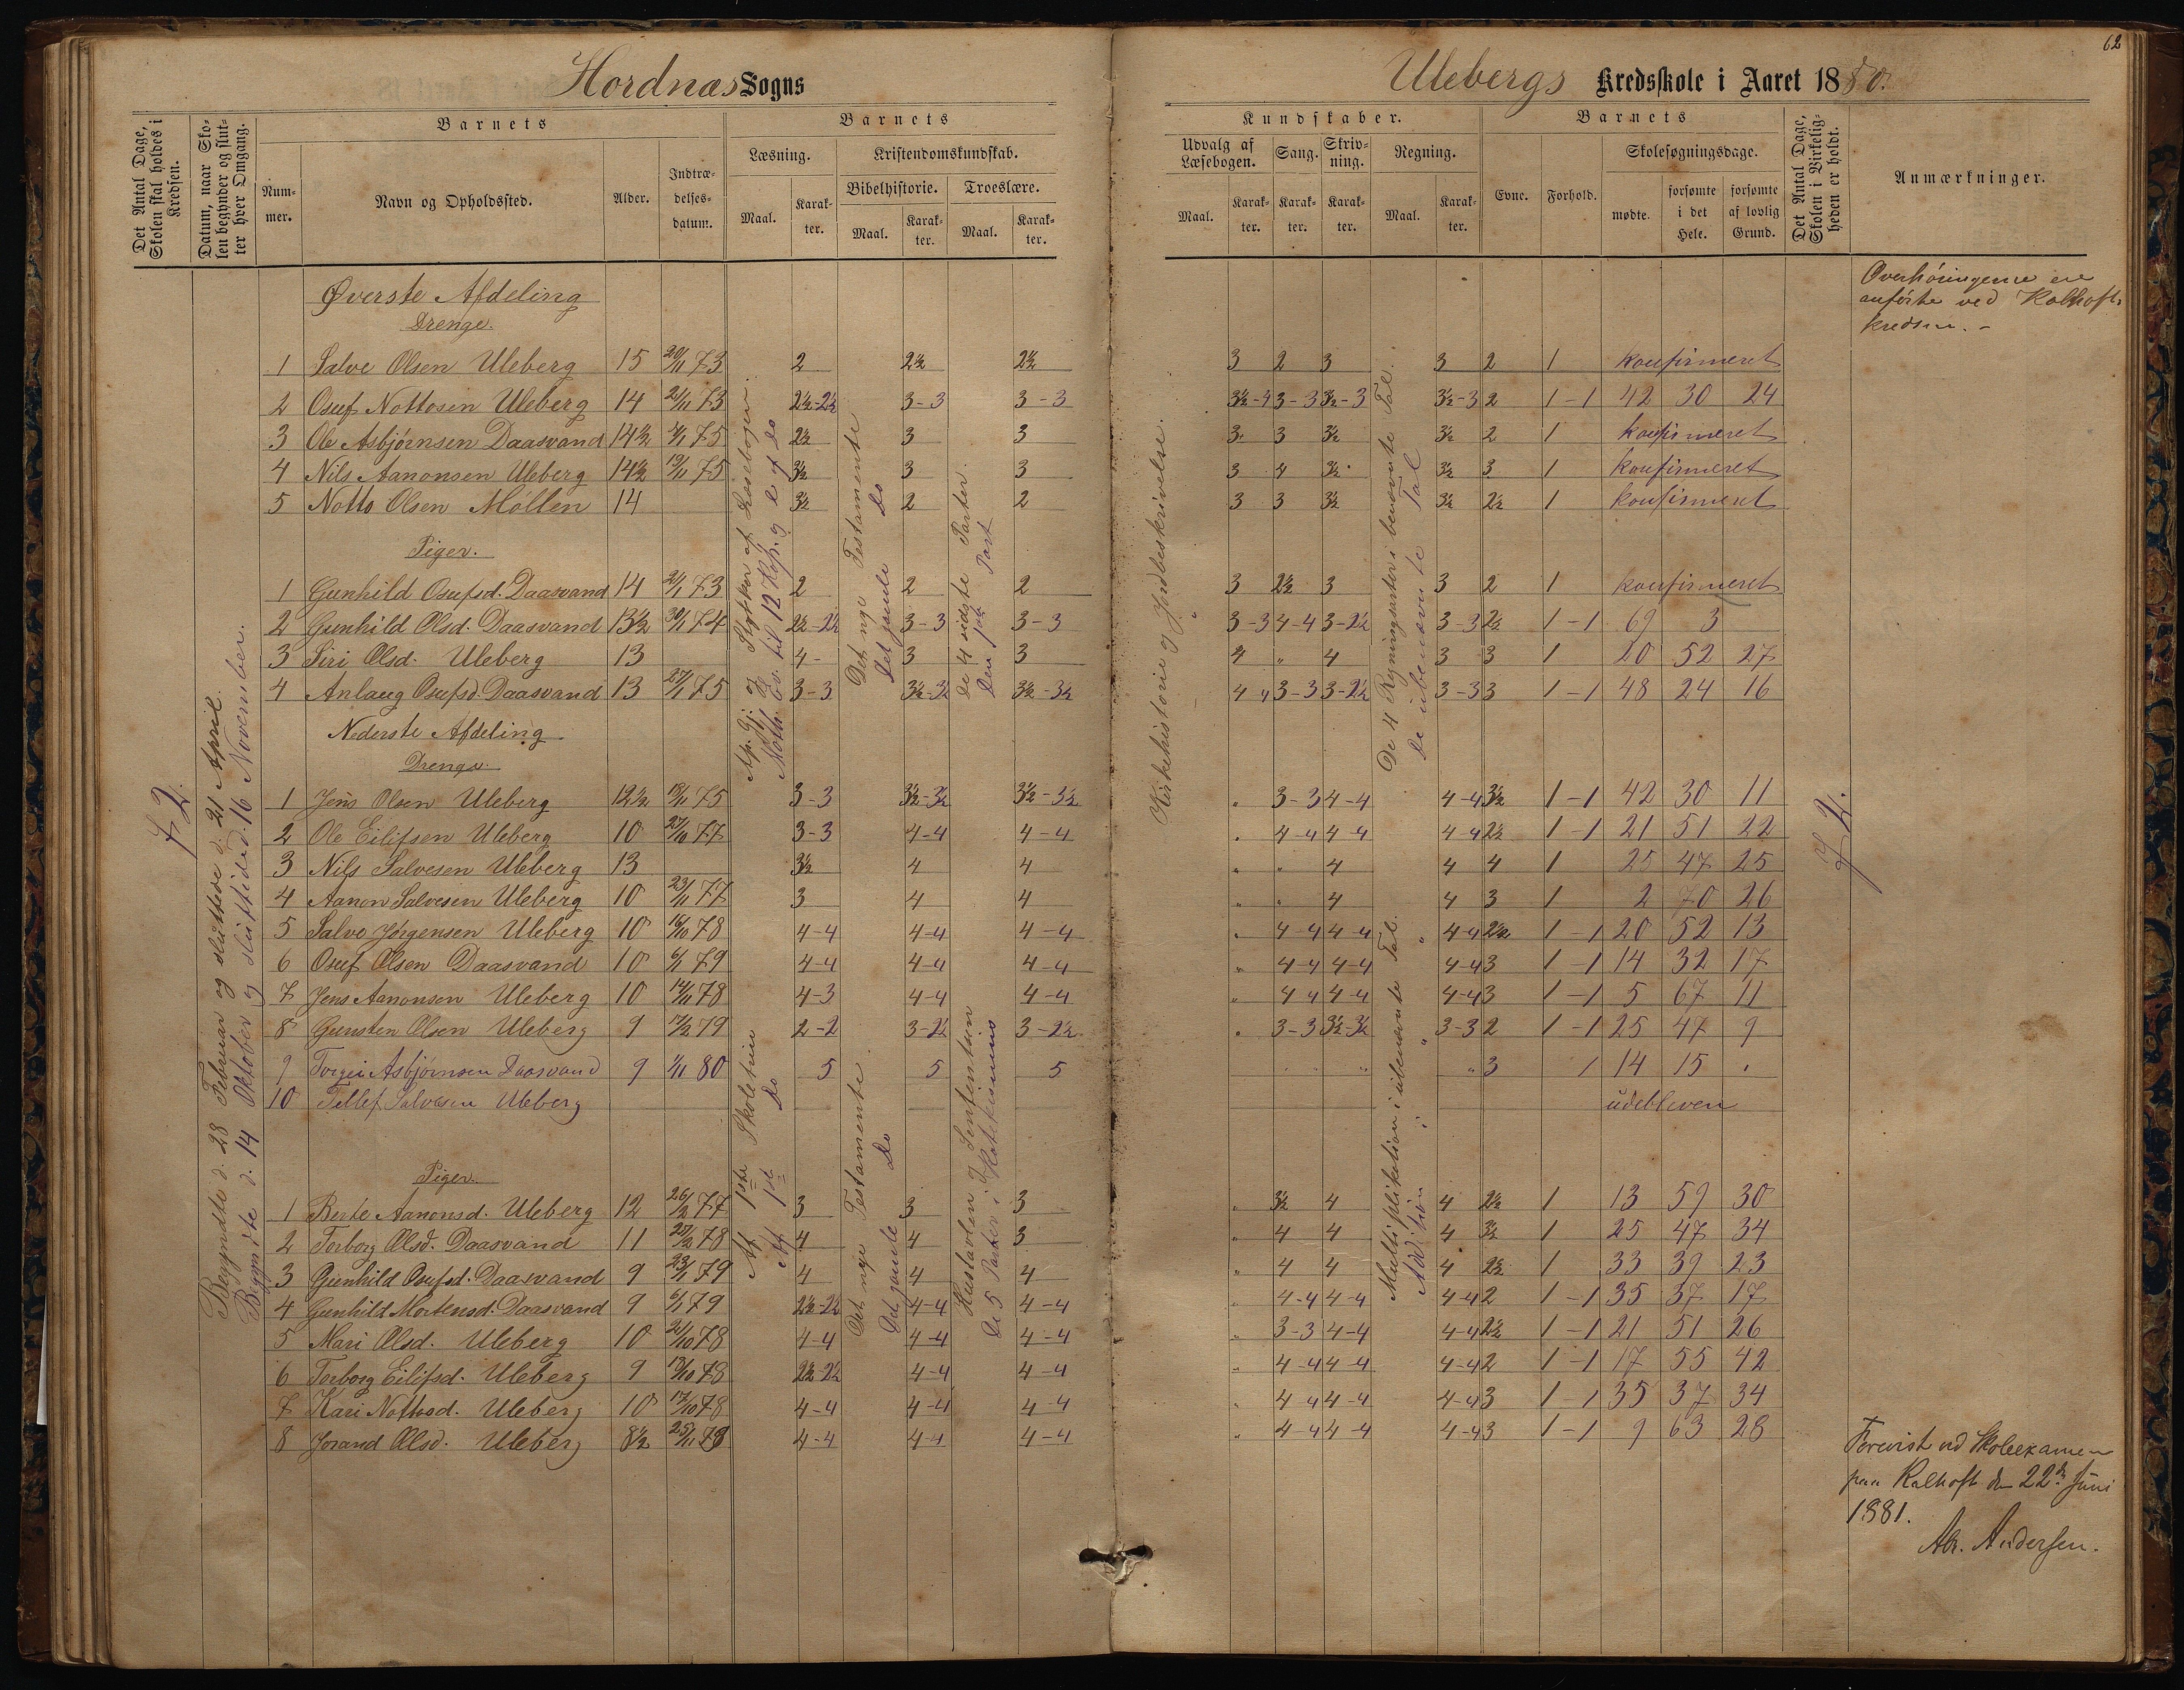 62
Hordnæs Sogns
Ulebergs Kredsskole i Aaret 1880.
Det Antal Dage, Skolen skal holdes i Kredsen.
Datum, naar Skolen begynder og slutter hver Omgang.
Barnets
Nummer.
Navn og Opholdssted.
Alder.
Indtrædelsesdatum.
Barnets
Læsning.
Kristendomskundskab.
Maal.
Karakter.
Bibelhistorie.
Troeslære.
Maal.
Karakter.
Maal.
Karakter.
Kundskaber.
Udvalg af Læsebogen.
Sang.
Skrivning.
Regning.
Maal.
Karakter.
Karakter.
Karakter.
Maal.
Karakter.
Barnets
Evne.
Forhold.
Skolesøgningsdage.
mødte.
forsømte i det Hele.
forsømte af lovlig Grund.
Det Antal Dage, Skolen i Virkeligheden er holdt.
Anmærkninger.
72.
Begyndte d. 28 Februar og sluttede d. 21 April.
Begyndte d. 14 Oktober og sluttede d. 16 November.
Øverste Afdeling
Drenge.
1 Salve Olsen Uleberg 15 20/11 73 2 2½ 2½ 3 2 3 3 2 1 konfirmeret
2 Osuf Nottosen Uleberg 14 21/11 73 2½-2½ 3-3 3-3 3½-4 3-3 3½-3 3½-3 2 1-1 42 30 24
3 Ole Asbjørnsen Daasvand 14½ 75 2½ 3 3 3 3 3½ 3½ 2 1 konfirmeret
4 Nils Aanonsen Uleberg 14½ 19/11 75 3½ 3 3 3 4 3½ 3½ 3 1 konfirmeret
5 Notto Olsen Möllen 14 3½ 2 2 3 3 3½ 3½ 2½ 1 konfirmeret
Piger.
1 Gunhild Osufsd. Daasvand 14 2/1 73 2 2 2 3 2½ 3 3 2 1 konfirmeret
2 Gunhild Olsd. Daasvand 13½ 30/1 74 2½-2½ 3-3 3-3 3-3 4-4 3-2½ 3-3 2½ 1-1 69 3
3 Siri Olsd. Uleberg 13 4- 3 3 4 " 4 3 3 1 20 52 27
4 Anlaug Osufsd. Daasvand 13 27/1 75 3-3 3½-3½ 3½-3½ 4 " 3-3 3-2½ 3-3 3 1-1 48 24 16
Nederste Afdeling
Drenge.
1 Jens Olsen Uleberg 12½ 18/11 75 3-3 3½-3½ 3½-3½ " 3-3 4-4 4-4 3½ 1-1 42 30 11
2 Ole Eilifsen Uleberg 10 27/10 77 3-3 4-4 4-4 " 4-4 4-4 4-4 2½ 1-1 21 51 22
3 Nils Salvesen Uleberg 13 3½ 4 4 " " 4 4 4 1 25 47 25
4 Aanon Salvesen Uleberg 10 23/11 77 3 4 4 " " 4 4 3 1 2 70 26
5 Salve Jörgensen Uleberg 10 16/10 78 4-4 4-4 4-4 " 4-4 4-4 4-4 2½ 1-1 20 52 13
6 Osuf Olsen Daasvand 10 6/1 79 4-4 4-4 4-4 " 4-4 4-4 4-4 3 1-1 14 32 17
7 Jens Aanonsen Uleberg 10 14/11 78 4-3 4-4 4-4 " 4-4 4-4 4-4 3 1-1 5 67 11
8 Gunsten Olsen Uleberg 9 17/2 79 2-2 3-2½ 3-2½ " 3-3 3½-3½ 3-3 2 1-1 25 47 9
9 Torgei Asbjørnsen Daasvand 9 1/11 80 5 5 5 " " " " 3 1 14 15 "
10 Tellef Salvesen Uleberg udebleven
Piger.
1 Berte Aanonsd. Uleberg 12 26/2 77 3 3 3 " 3½ 4 4 2½ 1 13 59 30
2 Torborg Olsd. Daasvand 11 78 4 4 3 " 4 4 4 3½ 1 25 47 34
3 Gunhild Osufsd. Daasvand 9 23/1 79 4 4 4 " 4 4 4 2½ 1 33 39 23
4 Gunhild Mortensd. Daasvand 9 6/1 79 2½-2½ 4-4 4-4 " 4-4 4-4 4-4 2 1-1 35 37 17
5 Mari Olsd. Uleberg 10 21/10 78 4-4 4-4 4-4 " 3-3 4-4 4-4 2½ 1-1 21 51 26
6 Torborg Eilifsd. Uleberg 9 18/10 78 2½-2½ 4-4 4-4 " 4-4 4-4 4-4 2 1-1 17 55 42
7 Kari Nottosd. Uleberg 10 17/10 78 4-4 4-4 4-4 " 4-4 4-4 4-4 3 1-1 35 37 34
8 Jorand Olsd. Uleberg 8½ 25/11 78 4-4 4-4 4-4 " 4-4 4-4 4-4 3 1-1 9 63 28
Ap. Gj. og Stykker af Læsebogen.
Math. Ev. til 12 Kap. og do af do
Det nye Testamente
Det gamle Do
De 4 sidste Parter.
Den 1ste Part
Kirkehistorie og Jordbeskrivelse.
De 4 Regningsarter i benævnte Tal.
De ubenævnte Tal
Af 1ste Skoletrin
Af 1ste Do
Det nye Testamente.
Det gamle Do
Hustavlen og
De 5 Parter i Katekismus
Multiplikation i ubenævnte Tal.
Addition i " "
72.
Overhöringerne ere
anförte ved Kalhofts
kredsen. -
Forevist ved Skoleexamen
paa Kalhoft den 22de Juni
1881.
Ab. Andersen.